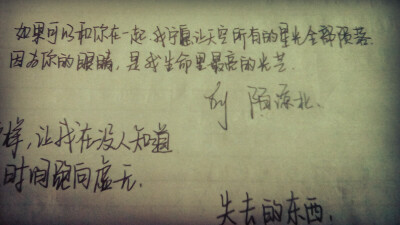 如果可以和你在一起,我宁愿让天空所有的星光全部陨落
因为你的眼睛,是我生命里最亮的光芒.
陌凉北.
样,让我在没人知道
时间跑向虚无.
失去的东西.